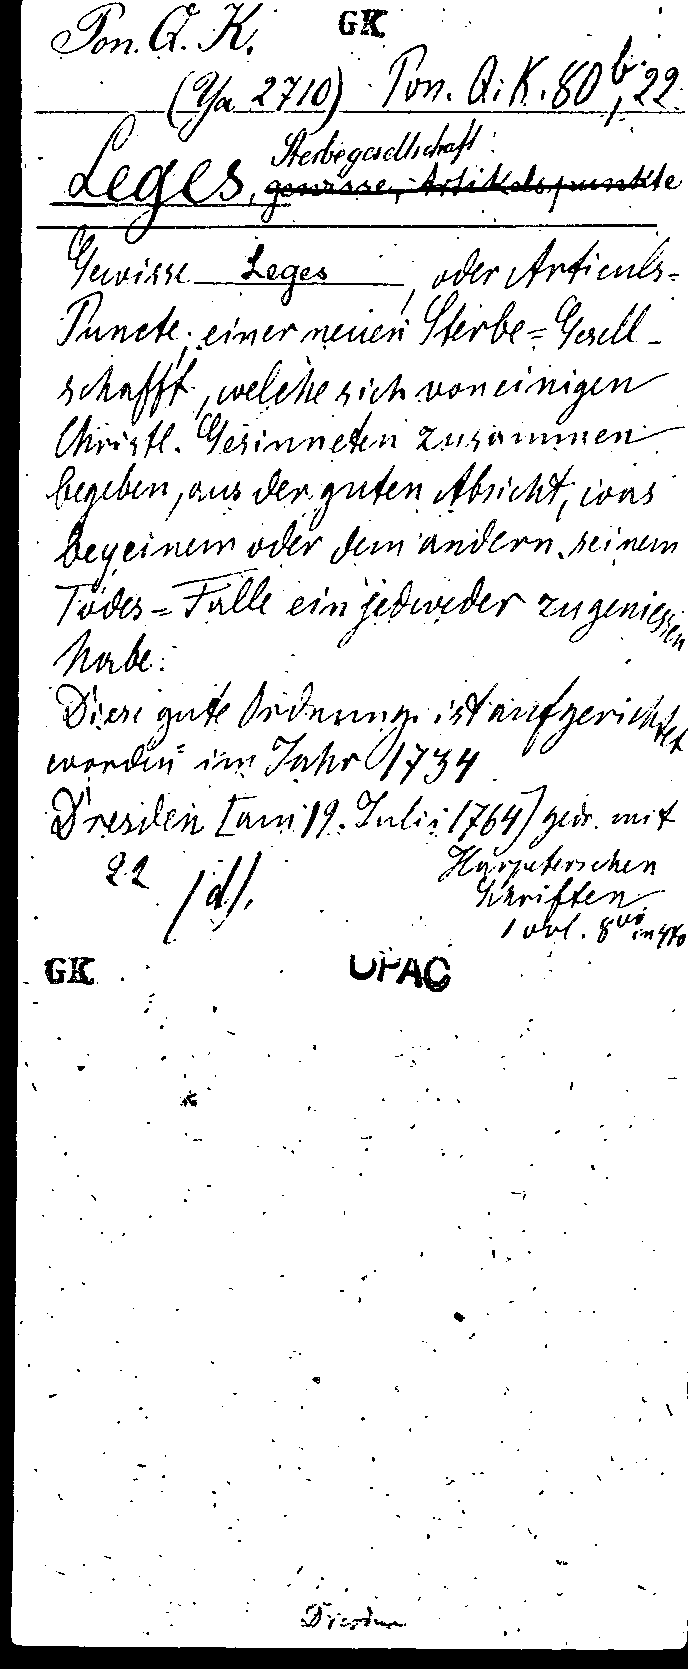 Pon. Q. K.
GK
(Ya 2710) Pon. Q. K. 80 b, 22.
Sterbegesellschaft:
Leges, gewisse, Artikelspunkte
Gewisse Leges, oder Articuls-
Puncte, einer neuen Sterbe=Gesell-
schafft, welche sich von einigen
Christl. Gesinneten zusammen
begeben, aus der guten Absicht, was
bey einem oder dem andern, seinem
Todes=Falle ein jedweder zugeniessen
habe.
Diese gute Ordnung ist aufgerichtet
worden im Jahr 1734
Dresden [am 19. Julii 1764] gedr. mit
Harpeterschen
Schriften
22 (d).
1 vol. 8vo in 4to
GK
OPAC
Dresden